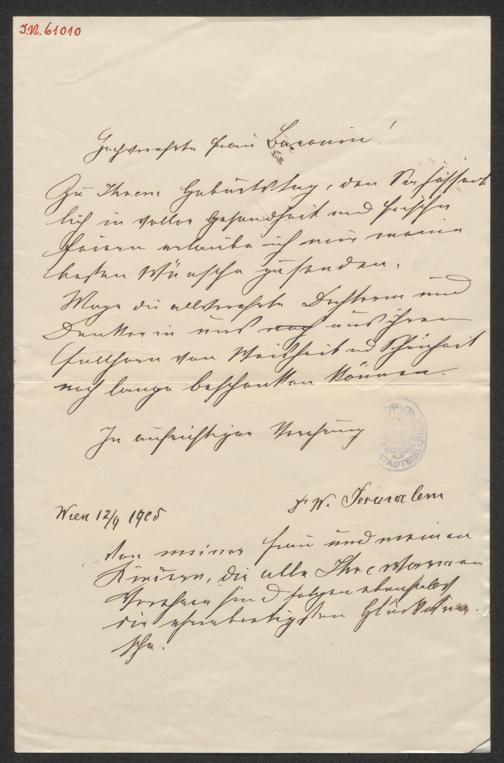 J.N. 61010
Hochverehrte Frau Baronin!
Zu Ihrem Geburtstag, den Sie hoffent-
lich in voller Gesundheit und Frische
feiern erlaube ich mir meine
besten Wünsche zu senden.
Möge die allverehrte Dichterin und
Denkerin uns noch aus ihrem
Füllhorn von Weisheit u Schönheit
noch lange beschenken können.
In aufrichtiger Verehrung
Dr W. Jerusalem
Wien 12/9 1905
Von meiner Frau und meinen
Kindern, die alle Ihre warmen
Verehrer sind folgen ebenfalls
die ehrerbietigsten Glückwün-
sche.